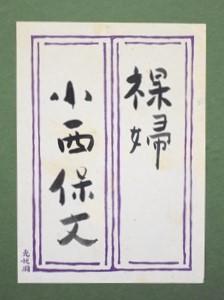 裸婦
小西保文